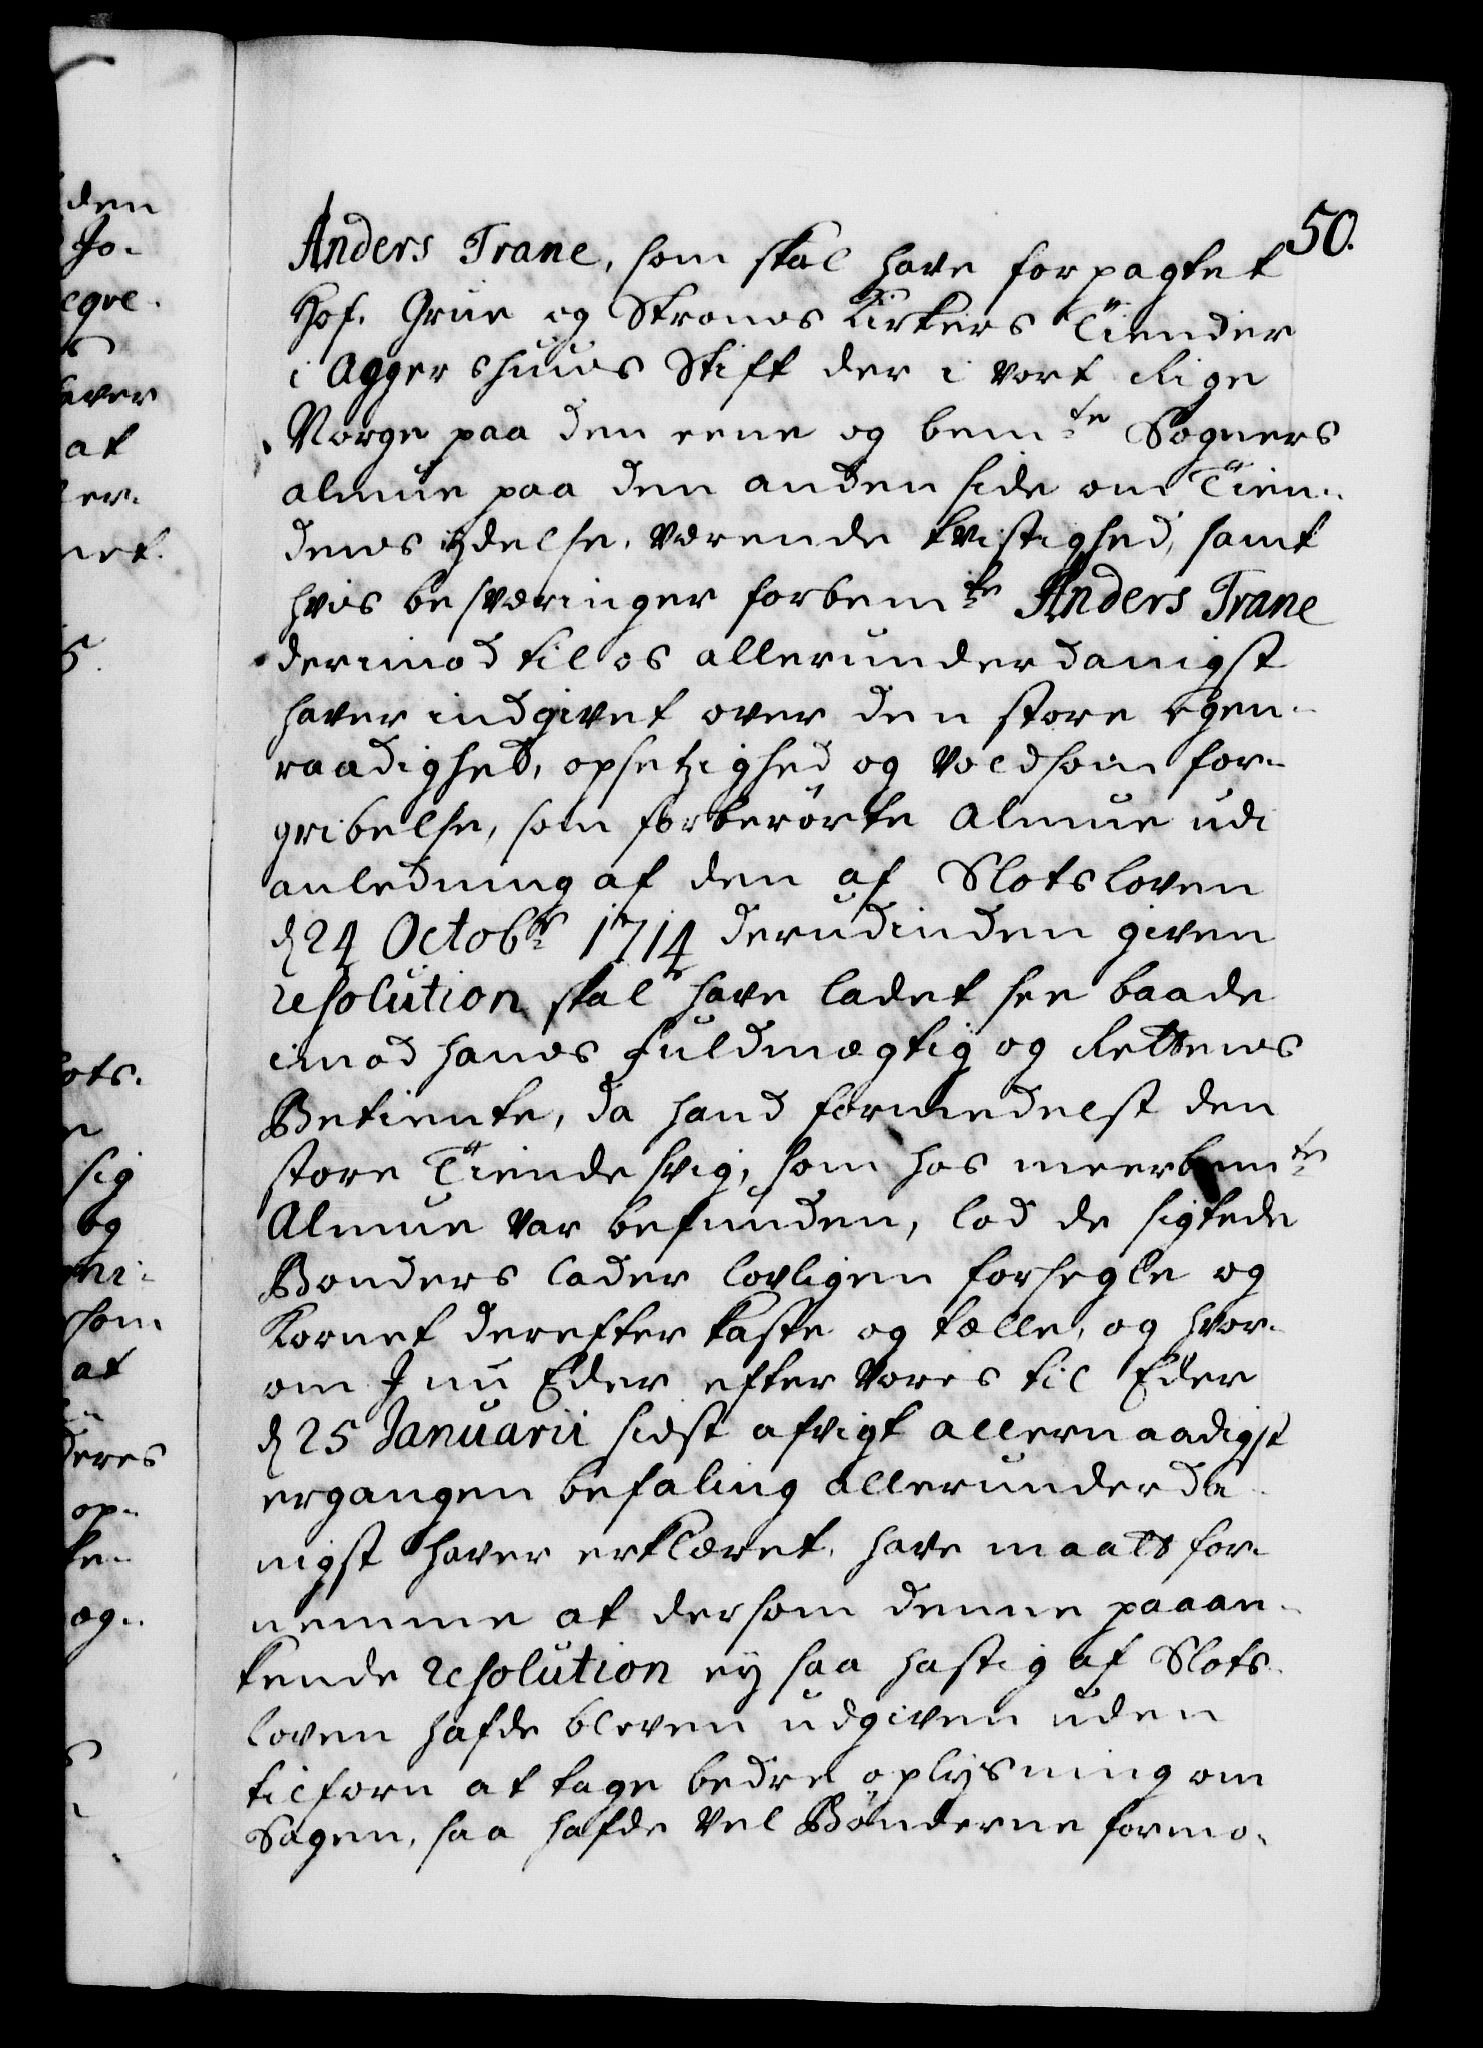 50.
Anders Trane, som skal have forpagtet
Hof, Grue og Strands Kirkers Tiender
i Aggershuus Stift der i vort Rige
Norge paa den eene og bem.te Sogners
almue paa den anden side om Tien-
dens ydelse, værende tvistighed, samt
hvis besværinger forbem.te Anders Trane
derimod til os allerunderdanigst
haver indgivet over den store egen-
raadighed, opsetzighed og voldsom for-
gribelse, som forberörte Almue udi
anledning af den af Slotsloven
d 24 Octobr. 1714 derudinden given
resolution skal have ladet see baade
imod hans fuldmægtig og Rettens
Betiente, da hand formedelst den
store Tiende svig, som hos meerbem.te
Almue var befunden, lod de sigtede
Bonders lader lovligen forsegle og
Kornet derefter kaste og tælle, og hvor-
om I nu Eder efter vores til Eder
d 25 Januarii sidst afvigt allernaadigst
ergangen befaling allerunderda-
nigst haver erklæret, have maatt for-
nemme at dersom denne paaan-
kende resolution ey saa hastig af Slots-
loven hafde bleven udgiven uden
tilforn at tage bedre oplysning om
Sagen, saa hafde vel Bönderne formo-
den
Jo-
egre-
s
aver
at
er-
net.
5.
lots-
e
sig
og
ni-
som
at
deres
op-
ke-
æg-